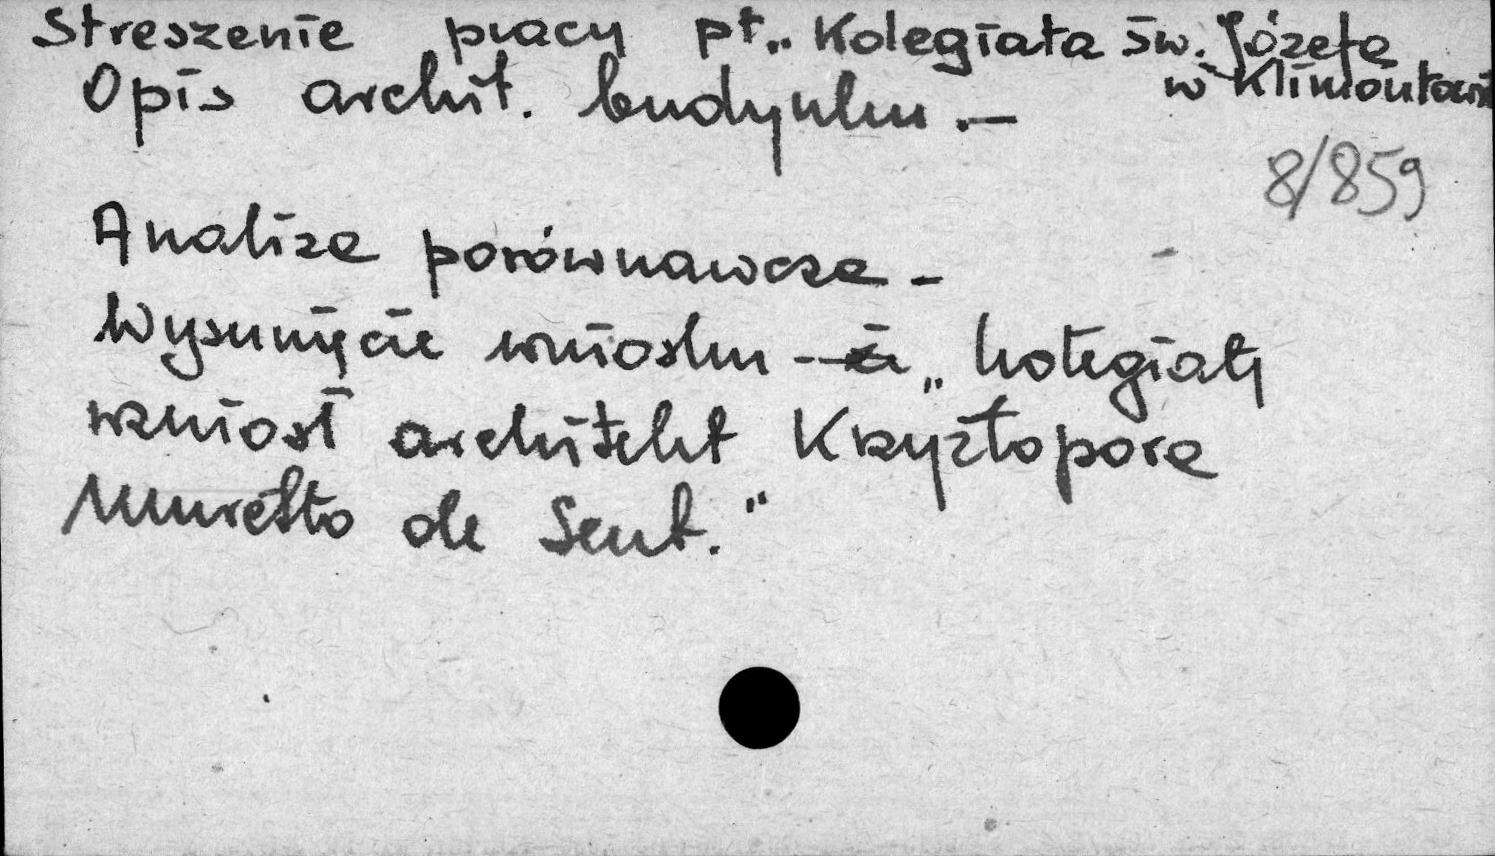 Streszenie pracy pt. „Kolegiata św. Józefa
w Klimontowie
Opis archit. budynku. —
8/859
Analiza porównawcza –
Wysunięcie wniosku – „kolegiatę
wzniósł architekt Krzyżtopora
Muretto de Sent."